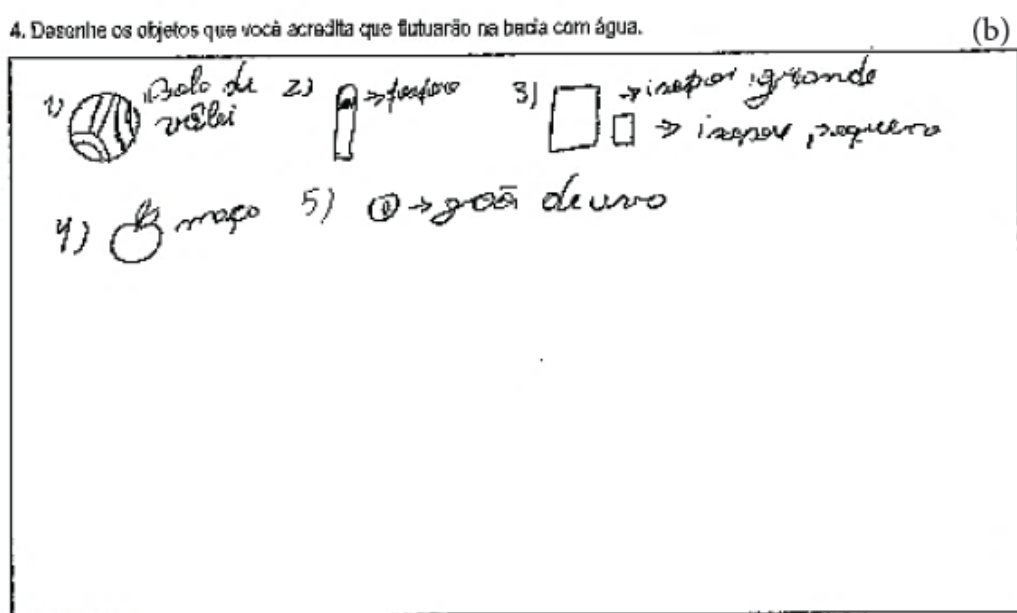 4. Desenhe os objetos que você acredita que flutuarão na bacia com água. (b)
1) Bola de 2) → fosforo 3) → isopor grande
vôlei → isopor pequeno
4) maça 5) → goã de uva